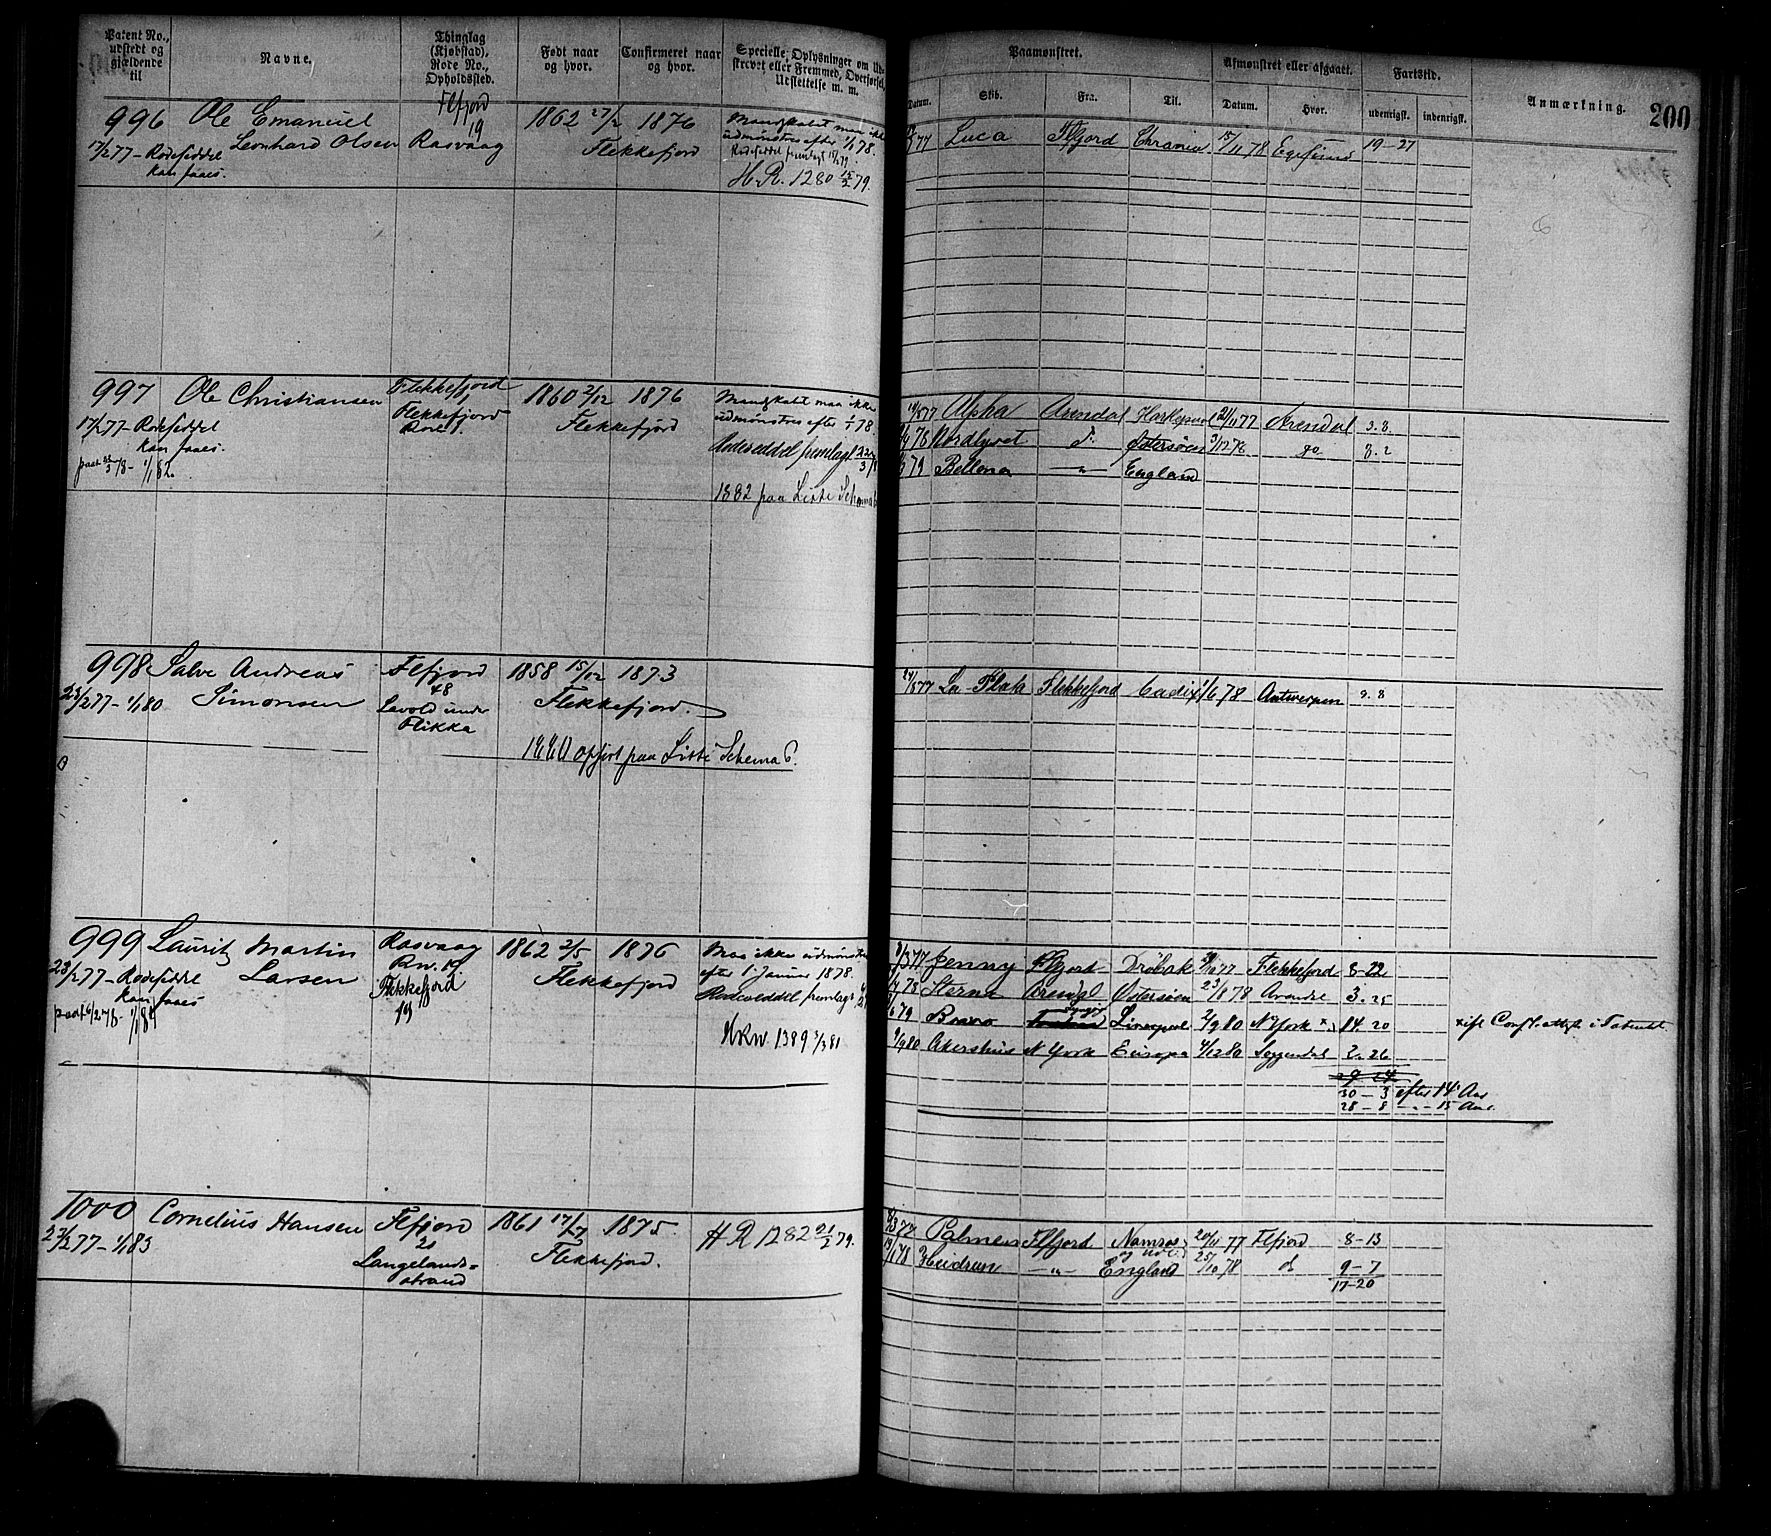 Patent No., udstedt og gjældende til
Navne.
Thinglag (Kjøbstad), Rode No., Opholdssted.
Født naar og hvor.
Confirmeret naar og hvor.
Specielle Oplysninger om Udskrevet eller Fremmed, Overførsel, Udslettelse m. m.
Paamønstret.
Datum.
Skib.
Fra.
Til.
Afmønstret eller afgaaet.
Datum.
Hvor.
Fartstid.
udenrigsk.
indenrigsk.
Anmærkning.
200
996 Ole Emanuel
Leonhard Olsen
17/2 77 - Rodeseddel
kan faaes.
Flfjord
19
Rasvaag
1862 27/2 1876
Flekkefjord
Mandskabet maa ikke
udmønstres efter 1/1 78.
H. R. 1280 15/2 79.
77 Luca Flfjord Chrania 15/11 78 Egersund 19-27
997 Ole Christiansen
17/2 77 - Rodeseddel
kan faaes.
1/1 82.
Flekkefjord
1
Flekkefjord
Rode 1.
1860 2/12 1876
Flekkefjord
Mandskabet maa ikke
udmønstres efter 1/1 78.
Rodeseddel fremlagt
1882 paa Liste Schema 6
77 Alpha Arendal 21/11 77 Arendal 3.8
78 Nordlyset Østersøen 3/12 78 do 8.2
79 Bellona -"- England
998 Salve Andreas
Simonsen
23/2 77 - 1/1 80
Flfjord
48
Lavold under
Flikka
1858 15/12 1873
Flekkefjord.
1880 opført paa Liste Schema 6.
77 La Plata Flekkefjord Cadix 1/6 78 Antwerpen 9.8
999 Laurits Martin
Larsen
23/2 77 - Rodeseddel
kan faaes
Rasvaag
Flekkefjord
19
1862 2/5 1876
Flekkefjord
Maa ikke udmønstres
efter 1 Januar 1878.
Rodeseddel fremlagt
1389 3/3 81
8/3 77 Jenny Flfjord Drøbak 77 Flekkefjord 8-22
78 Sterna Arendal Østersøen 23/8 78 Arendal 3.25
79 Bravo Liverpool 2/9 80 N York x) 14 20
9/9 80 Akershus N York Europa 4/12 80 Soggendal 2.26
29 24
30 - 3 efter 14 Aar
28 - 8 -"- 15 Aar.
1000 Cornelius Hansen
23/2 77 - 1/1 83
Flfjord
20
Langelands=
strand
1861 17/7 1875.
Flekkefjord.
H R 1282 21/2 79.
8/3 77 Palmen Flfjord Namsos 20/11 77 Flfjord 8-13
78 Heidrun -"- England 25/10 78 do 9-7
17-20